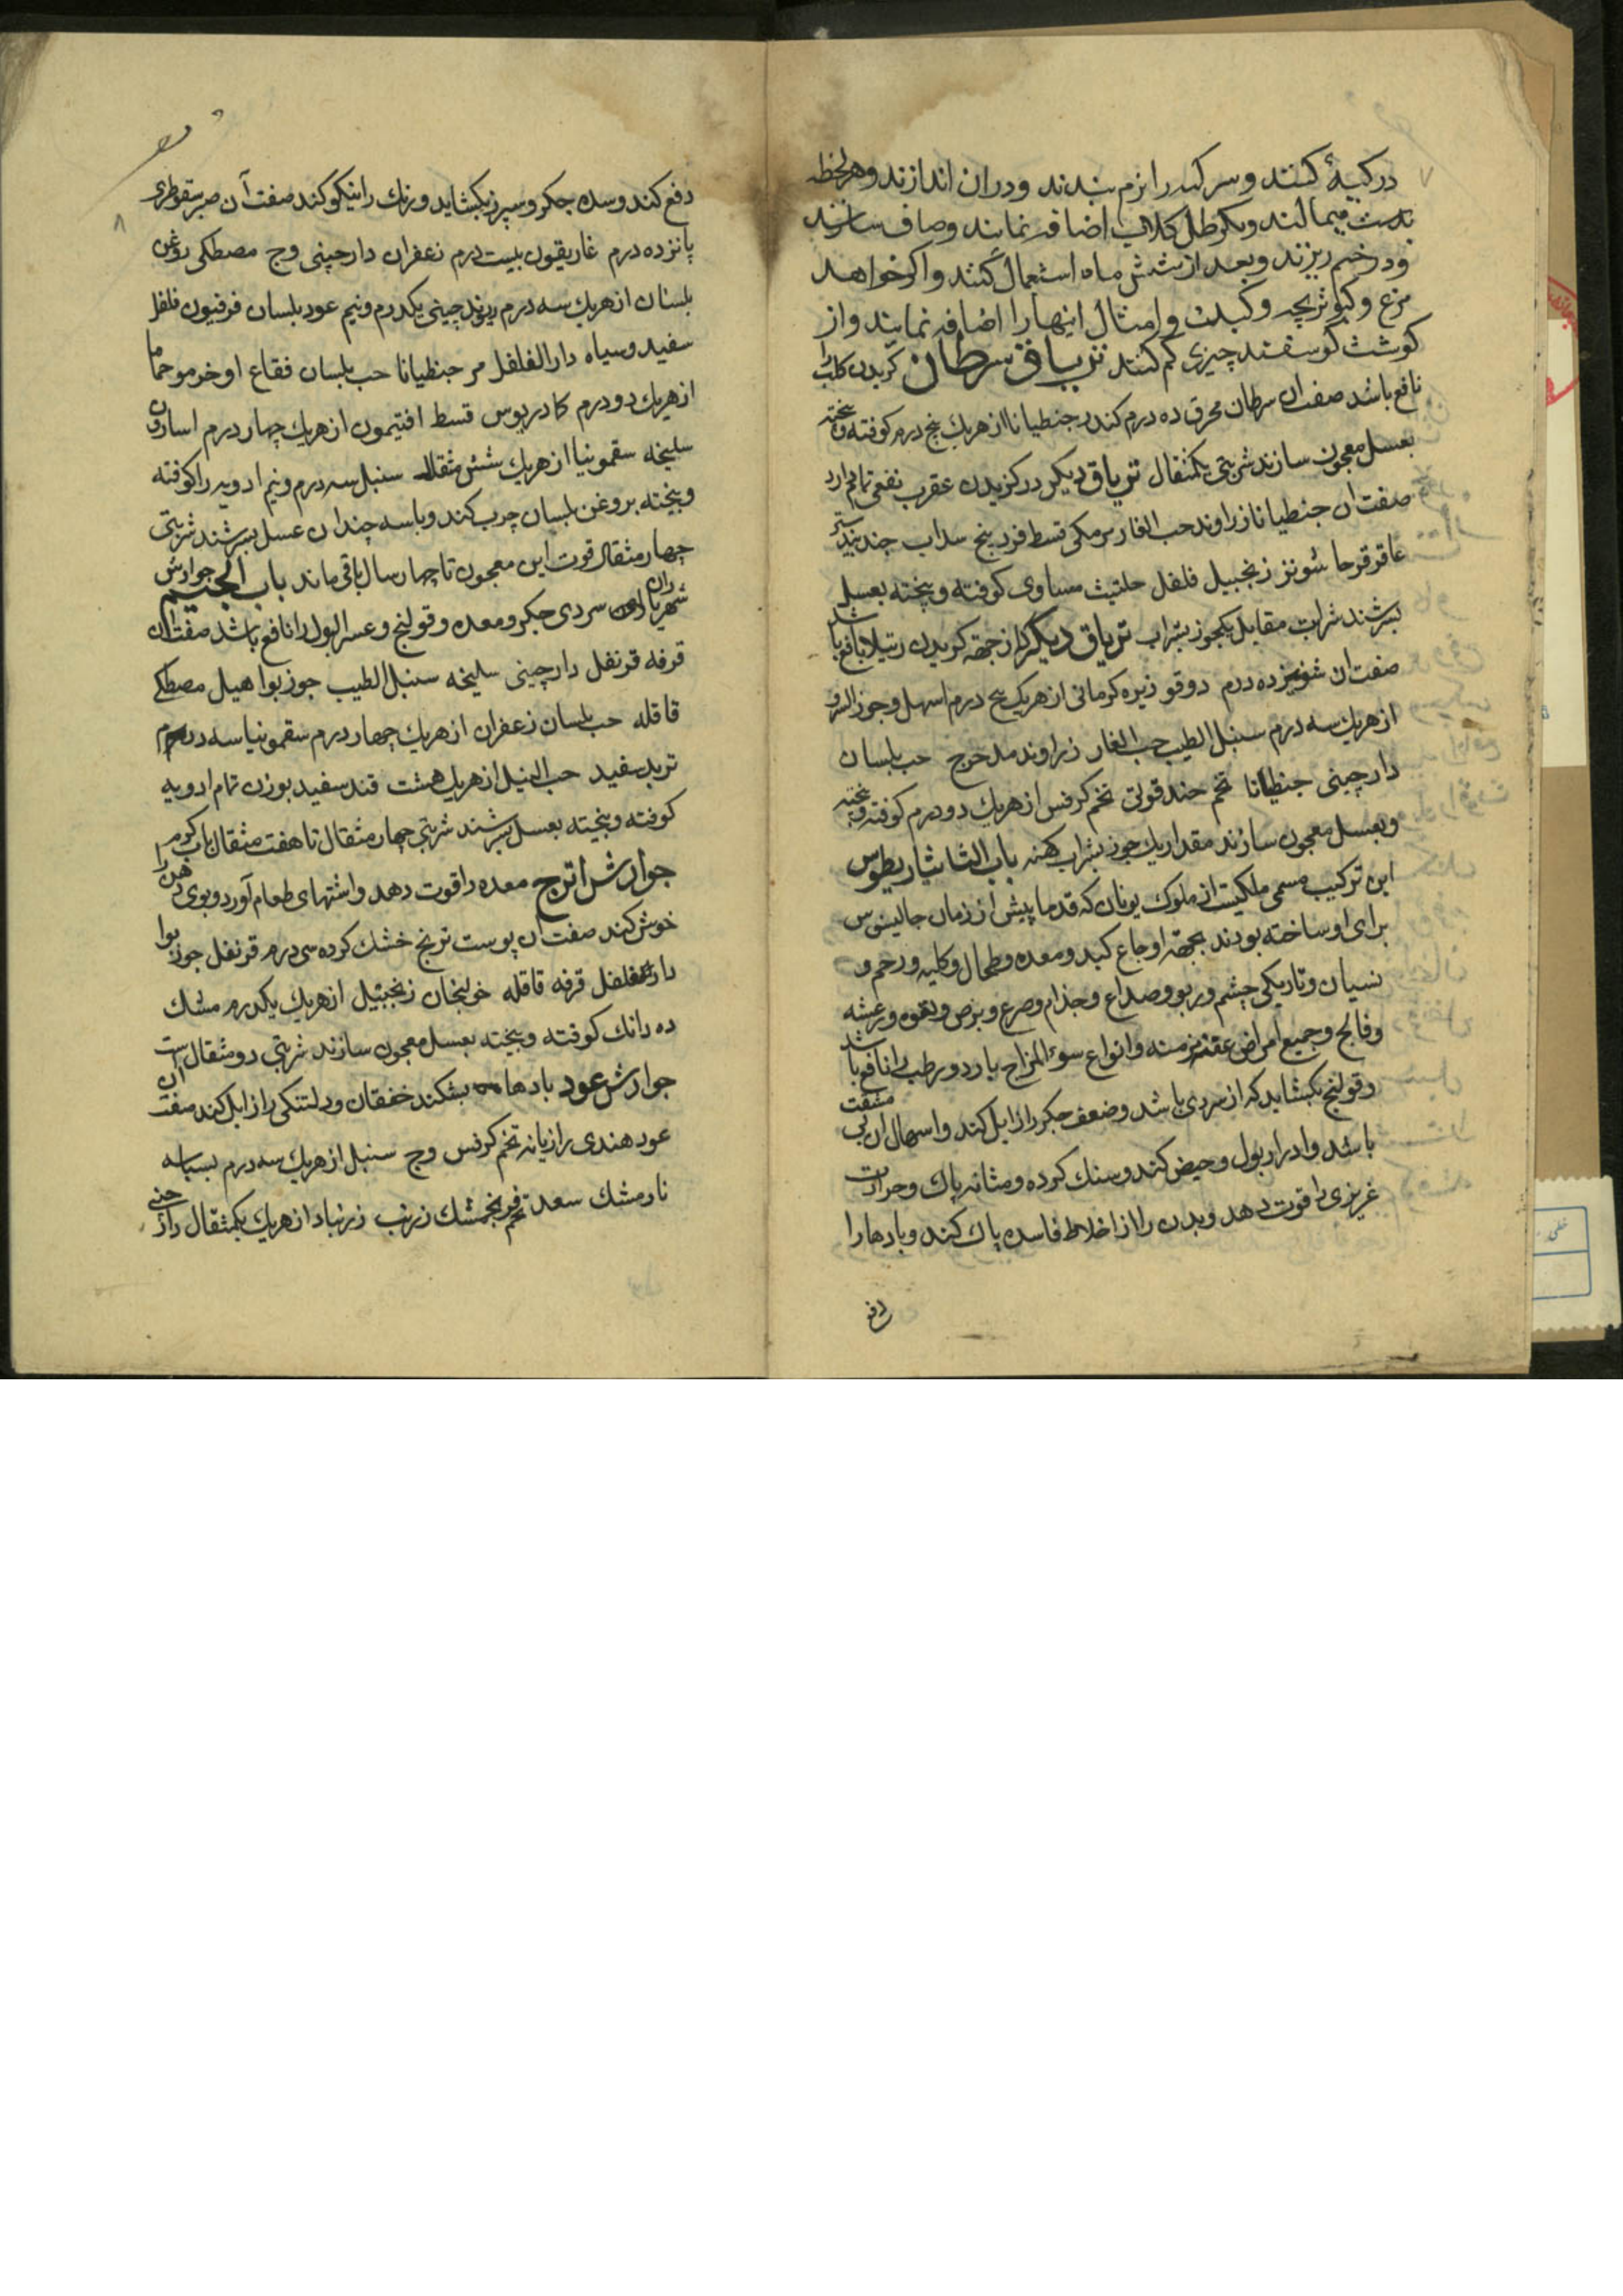 در کیسهٔ کنند و سر کیسه را نرم بندند و دران اندازند و هر لحظه
بدست میمالند و یکرطل کلاب اضافه نمایند و صاف سازند
و در خم ریزند و بعد از شش ماه استعمال کنند و اکر خواهد
مرغ و کبوتر بچه و کبک و امثال اینها را اضافه نمایند و از
کوشت کوسفند چیزی کم کنند تریاق سرطان کزیدن کلب را
نافع باشد صفت ان سرطان محرق ده درم کندر جنطیانا از هریك پنج درم کوفته و بیخته
بعسل معجون سازند شربتی یکمثقال تریاق دیکر در کزیدن عقرب نفعی تمام دارد
صفت ان جنطیانا زراوند حب الغار مر مکی قسط فودینج سداب جندبیدستر
عاقرقرحا شونیز زنجبیل فلفل حلتیث مساوی کوفته و بیخته بعسل
بسرشند شراب مقابل یکجوز بشراب تریاق دیکر از جهة کزیدن رتیلا نافع باشد
صفت ان شونیز ده درم دوقو زیره کرمانی از هریك پنج درم اسهل و جوز السرو
از هریك سه درم سنبل الطیب حب الغار زراوند مدحرج حب بلسان
دارچینی جنطیانا تخم حندقوقی تخم کرفس از هریك دو درم کوفته و بیخته
و بعسل معجون سازند مقدار یك جوز بشراب کهنه باب الثا ثیادریطوس
این ترکیب مسمی ملکیست از ملوك یونان که قدما پیش از زمان جالینوس
برای او ساخته بودند بجهة اوجاع کبد و معده و طحال و کلیه و رحم و
نسیان و تاریکی چشم و ربو و صداع و جذام و صرع و برص و لقوه و رعشه
و فالج و جمیع امراض عفنه مزمنه و انواع سوء المزاج بارد و رطب را نافع باشد
و قولنج بکشاید که از سردی باشد و ضعف جکر را زایل کند و اسهال ان بی مشقت
باشد و ادرار بول و حیض کند و سنك کرده و مثانه پاك و حرارت
غریزی را قوت دهد و بدن را از اخلاط فاسده پاك کند و بادها را
دفع
دفع کند و سده جکر و سپرز بکشاید و رنك را نیکو کند صفت آن صبر سقوطری
پانزده درم غاریقون بیست درم زعفران دارچینی وج مصطکی روغن
بلسان از هریك سه درم ریوند چینی یکدرم و نیم عود بلسان فرفیون فلفل
سفید و سیاه دار الفلفل مر جنطیانا حب بلسان فقاع اذخر مو حماما
از هریك دو درم کادریوس قسط افتیمون از هریك چهار درم اسارون
سلیخه سقمونیا از هریك شش مثقال سنبل سه درم و نیم ادویه را کوفته
و بیخته بروغن بلسان چرب کند و با سه چندان عسل بسرشند شربتی
چهار مثقال قوت این معجون تا چهار سال باقی ماند باب الجیم جوارش
شهریاران سردی جکر و معده و قولنج و عسر البول را نافع باشد صفت ان
قرفه قرنفل دارچینی سلیخه سنبل الطیب جوزبوا هیل مصطکی
قاقله حب بلسان زعفران از هریك چهار درم سقمونیا سه درم
تربد سفید حب النیل از هریك هشت قند سفید بوزن تمام ادویه
کوفته و بیخته بعسل بسرشند شربتی چهار مثقال تا هفت مثقال باب کرم
جوارش اترج معده را قوت دهد و اشتهای طعام آورد و بوی دهن را
خوش کند صفت ان پوست ترنج خشك کرده سی درم قرنفل جوز بوا
دار فلفل قرفه قاقله خولنجان زنجبیل از هریك یکدرم مشك
ده دانك کوفته و بیخته بعسل معجون سازند شربتی دو مثقال است
جوارش عود بادها بشکند خفقان و دلتنکی را زایل کند صفت ان
عود هندی رازیانه تخم کرفس وج سنبل از هریك سه درم بسباسه
نارمشك سعد تخم فرنجمشك زرنب زرنباد از هریك یکمثقال